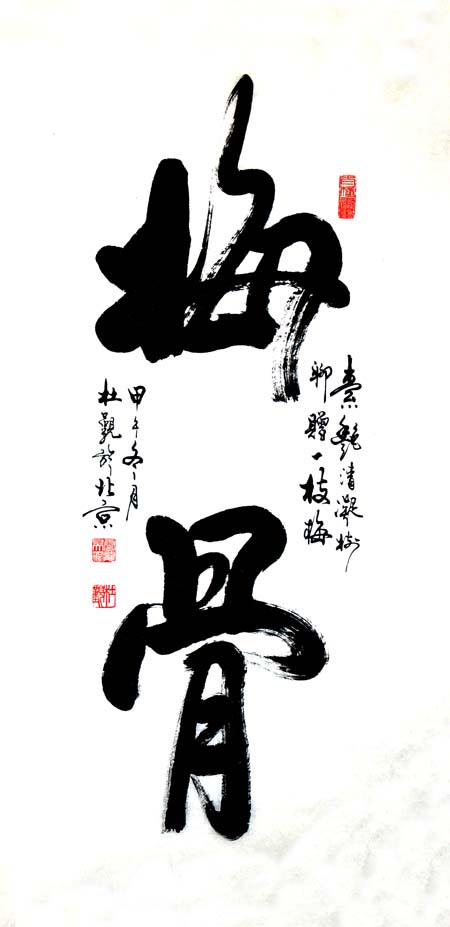 梅
骨
素艷清凝樹
聊贈一枝梅
甲午冬月
杜觀於北京